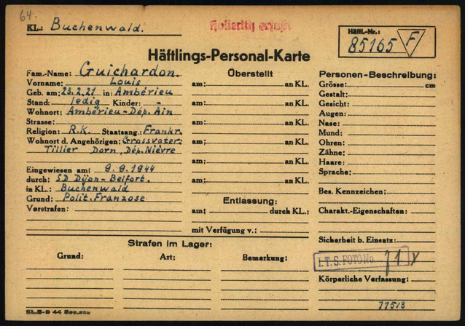 64.
KL: Buchenwald.
Hollerith erfaßt
Häftl.-Nr.:
85165 F
Häftlings-Personal-Karte
Fam.-Name: Guichardon
Vorname: Louis
Geb. am: in Ambérieu
Stand: ledig Kinder:
Wohnort: Ambérieu-Dép. Ain
Strasse:
Religion: R.K. Staatsang. Frankr.
Wohnort d. Angehörigen: Grossvater:
Tillier Dorn, Dép. Nièvre
Eingewiesen am:
durch: SD Dijon-Belfort.
in KL.: Buchenwald
Grund: Polit. Franzose
Vorstrafen:
Überstellt
am: an KL.
am: an KL.
am: an KL.
am: an KL.
am: an KL.
am: an KL.
Entlassung:
am: durch KL.:
mit Verfügung v.:
Personen-Beschreibung:
Grösse: cm
Gestalt:
Gesicht:
Augen:
Nase:
Mund:
Ohren:
Zähne:
Haare:
Sprache:
Bes. Kennzeichen:
Charakt.-Eigenschaften:
Sicherheit b. Einsatz:
I.T.S. FOTO No.
Körperliche Verfassung:
Strafen im Lager:
Grund: Art: Bemerkung: